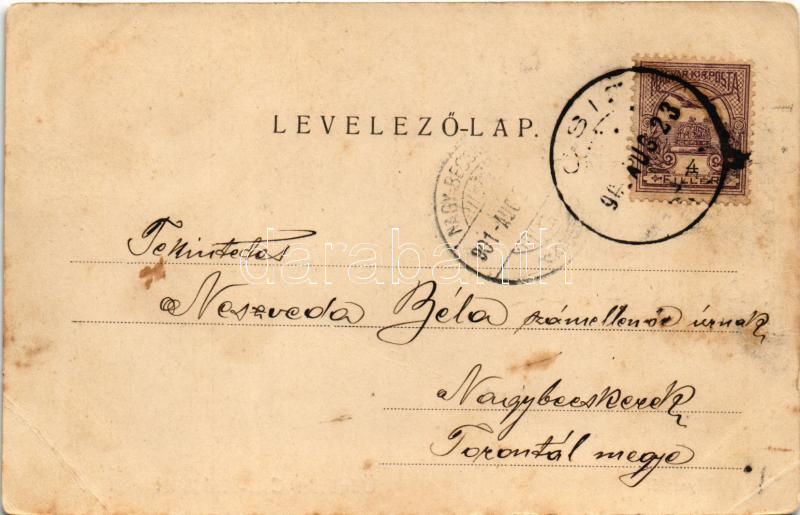 LEVELEZŐ-LAP.
MAGYAR KIR. POSTA
4
FILLÉR
AUG 23
NAGY-BECS
901 - AUG
Tekintetes
Neszveda Béla számellenőr úrnak
Nagybecskerek
Torontál megye
darabanth